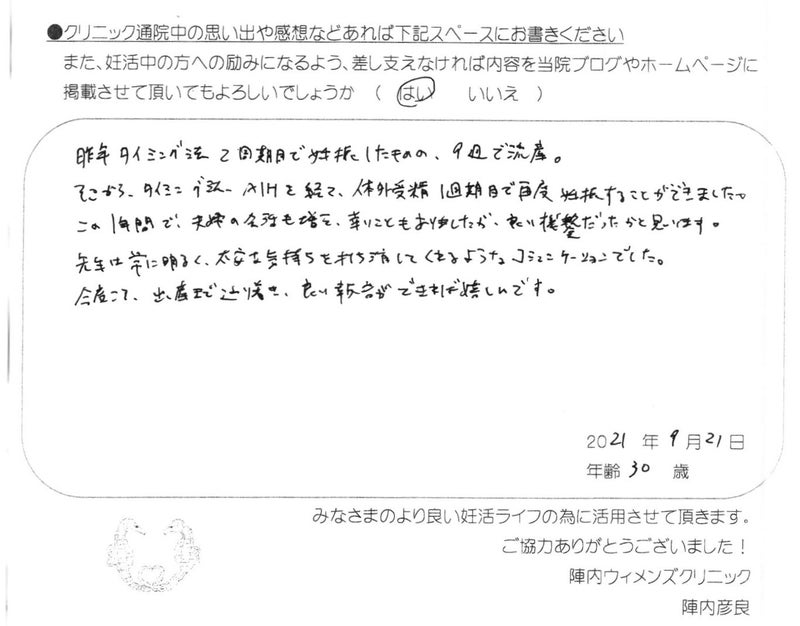 ●クリニック通院中の思い出や感想などあれば下記スペースにお書きください
また、妊活中の方への励みになるよう、差し支えなければ内容を当院ブログやホームページに
掲載させて頂いてもよろしいでしょうか （ はい いいえ ）
昨年タイミング法2周期目で妊娠したものの、9週で流産。
そこから、タイミング法、AIHを経て、体外受精1周期目で再度妊娠することができました。
この1年間で、夫婦の会話も増え、辛いこともありましたが、良い機会だったかと思います。
先生は常に明るく、不安な気持ちを打ち消してくれるようなコミュニケーションでした。
今度こそ、出産まで辿り着き、良い報告ができれば嬉しいです。
2021 年 9 月 21 日
年齢 30 歳
みなさまのより良い妊活ライフの為に活用させて頂きます。
ご協力ありがとうございました！
陣内ウィメンズクリニック
陣内彦良